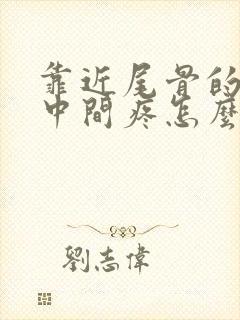 靠近尾骨的
中間疼怎麼
劉志偉